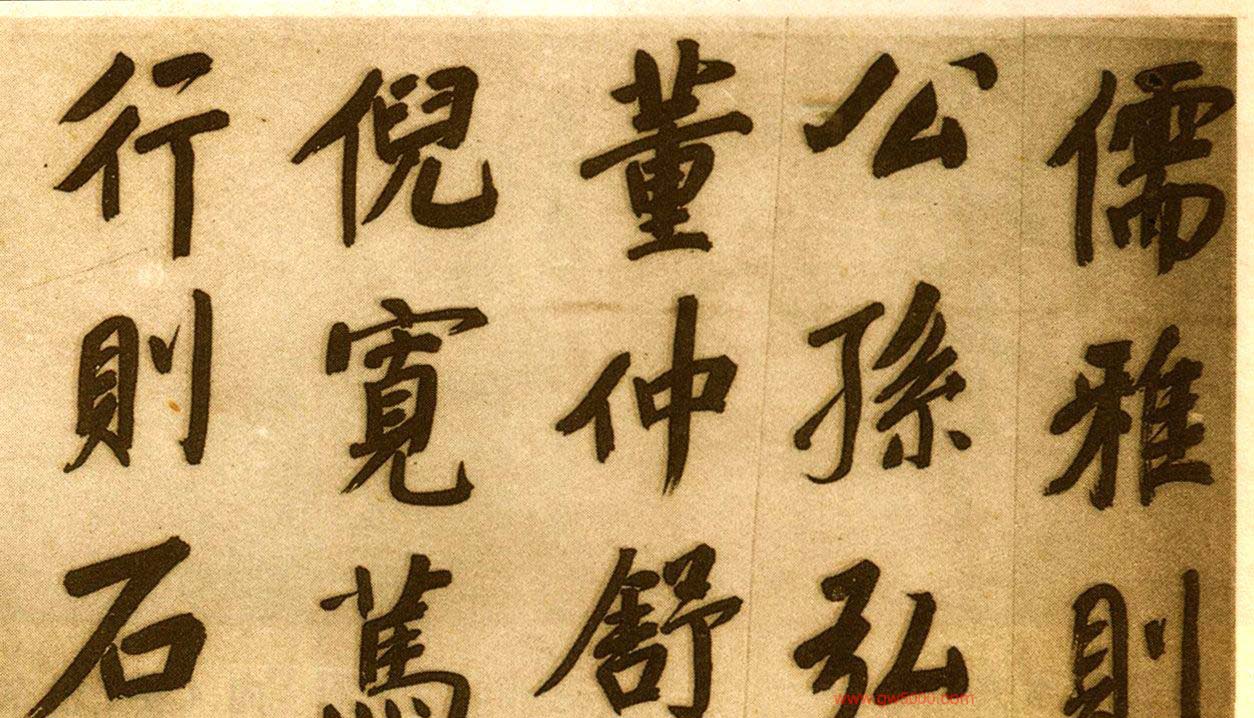 儒雅則
公孫弘
董仲舒
倪寬篤
行則石